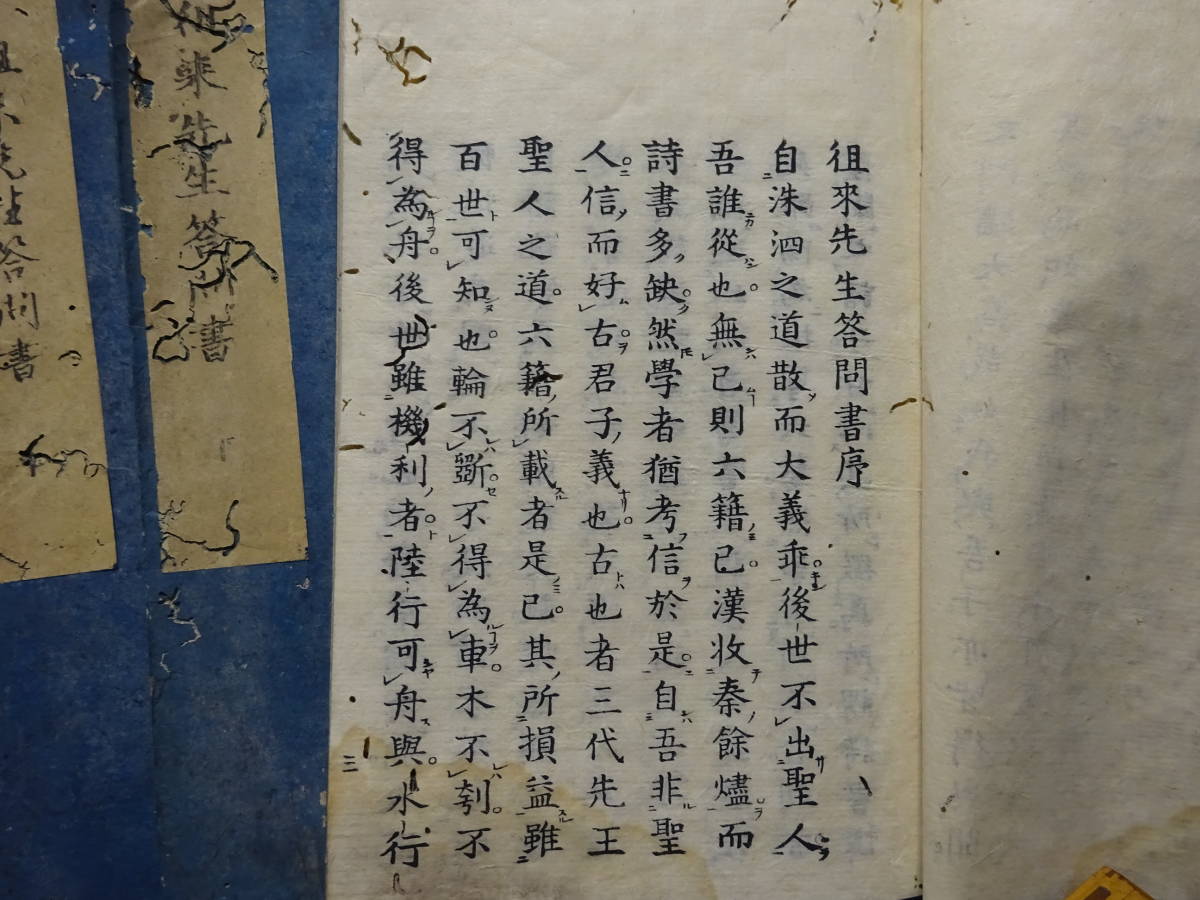 徂來先生答問書序
自洙泗之道散而大義乖後世不出聖人
吾誰從也無已則六籍已漢收秦餘燼而
詩書多缺然學者猶考信於是自吾非聖
人信而好古君子義也古也者三代先王
聖人之道六籍所載者是已其所損益雖
百世可知也輪不斲不得為車木不刳不
得為舟後世雖機利者陸行可舟與水行
三
徂來先生答問書
徂來先生答問書